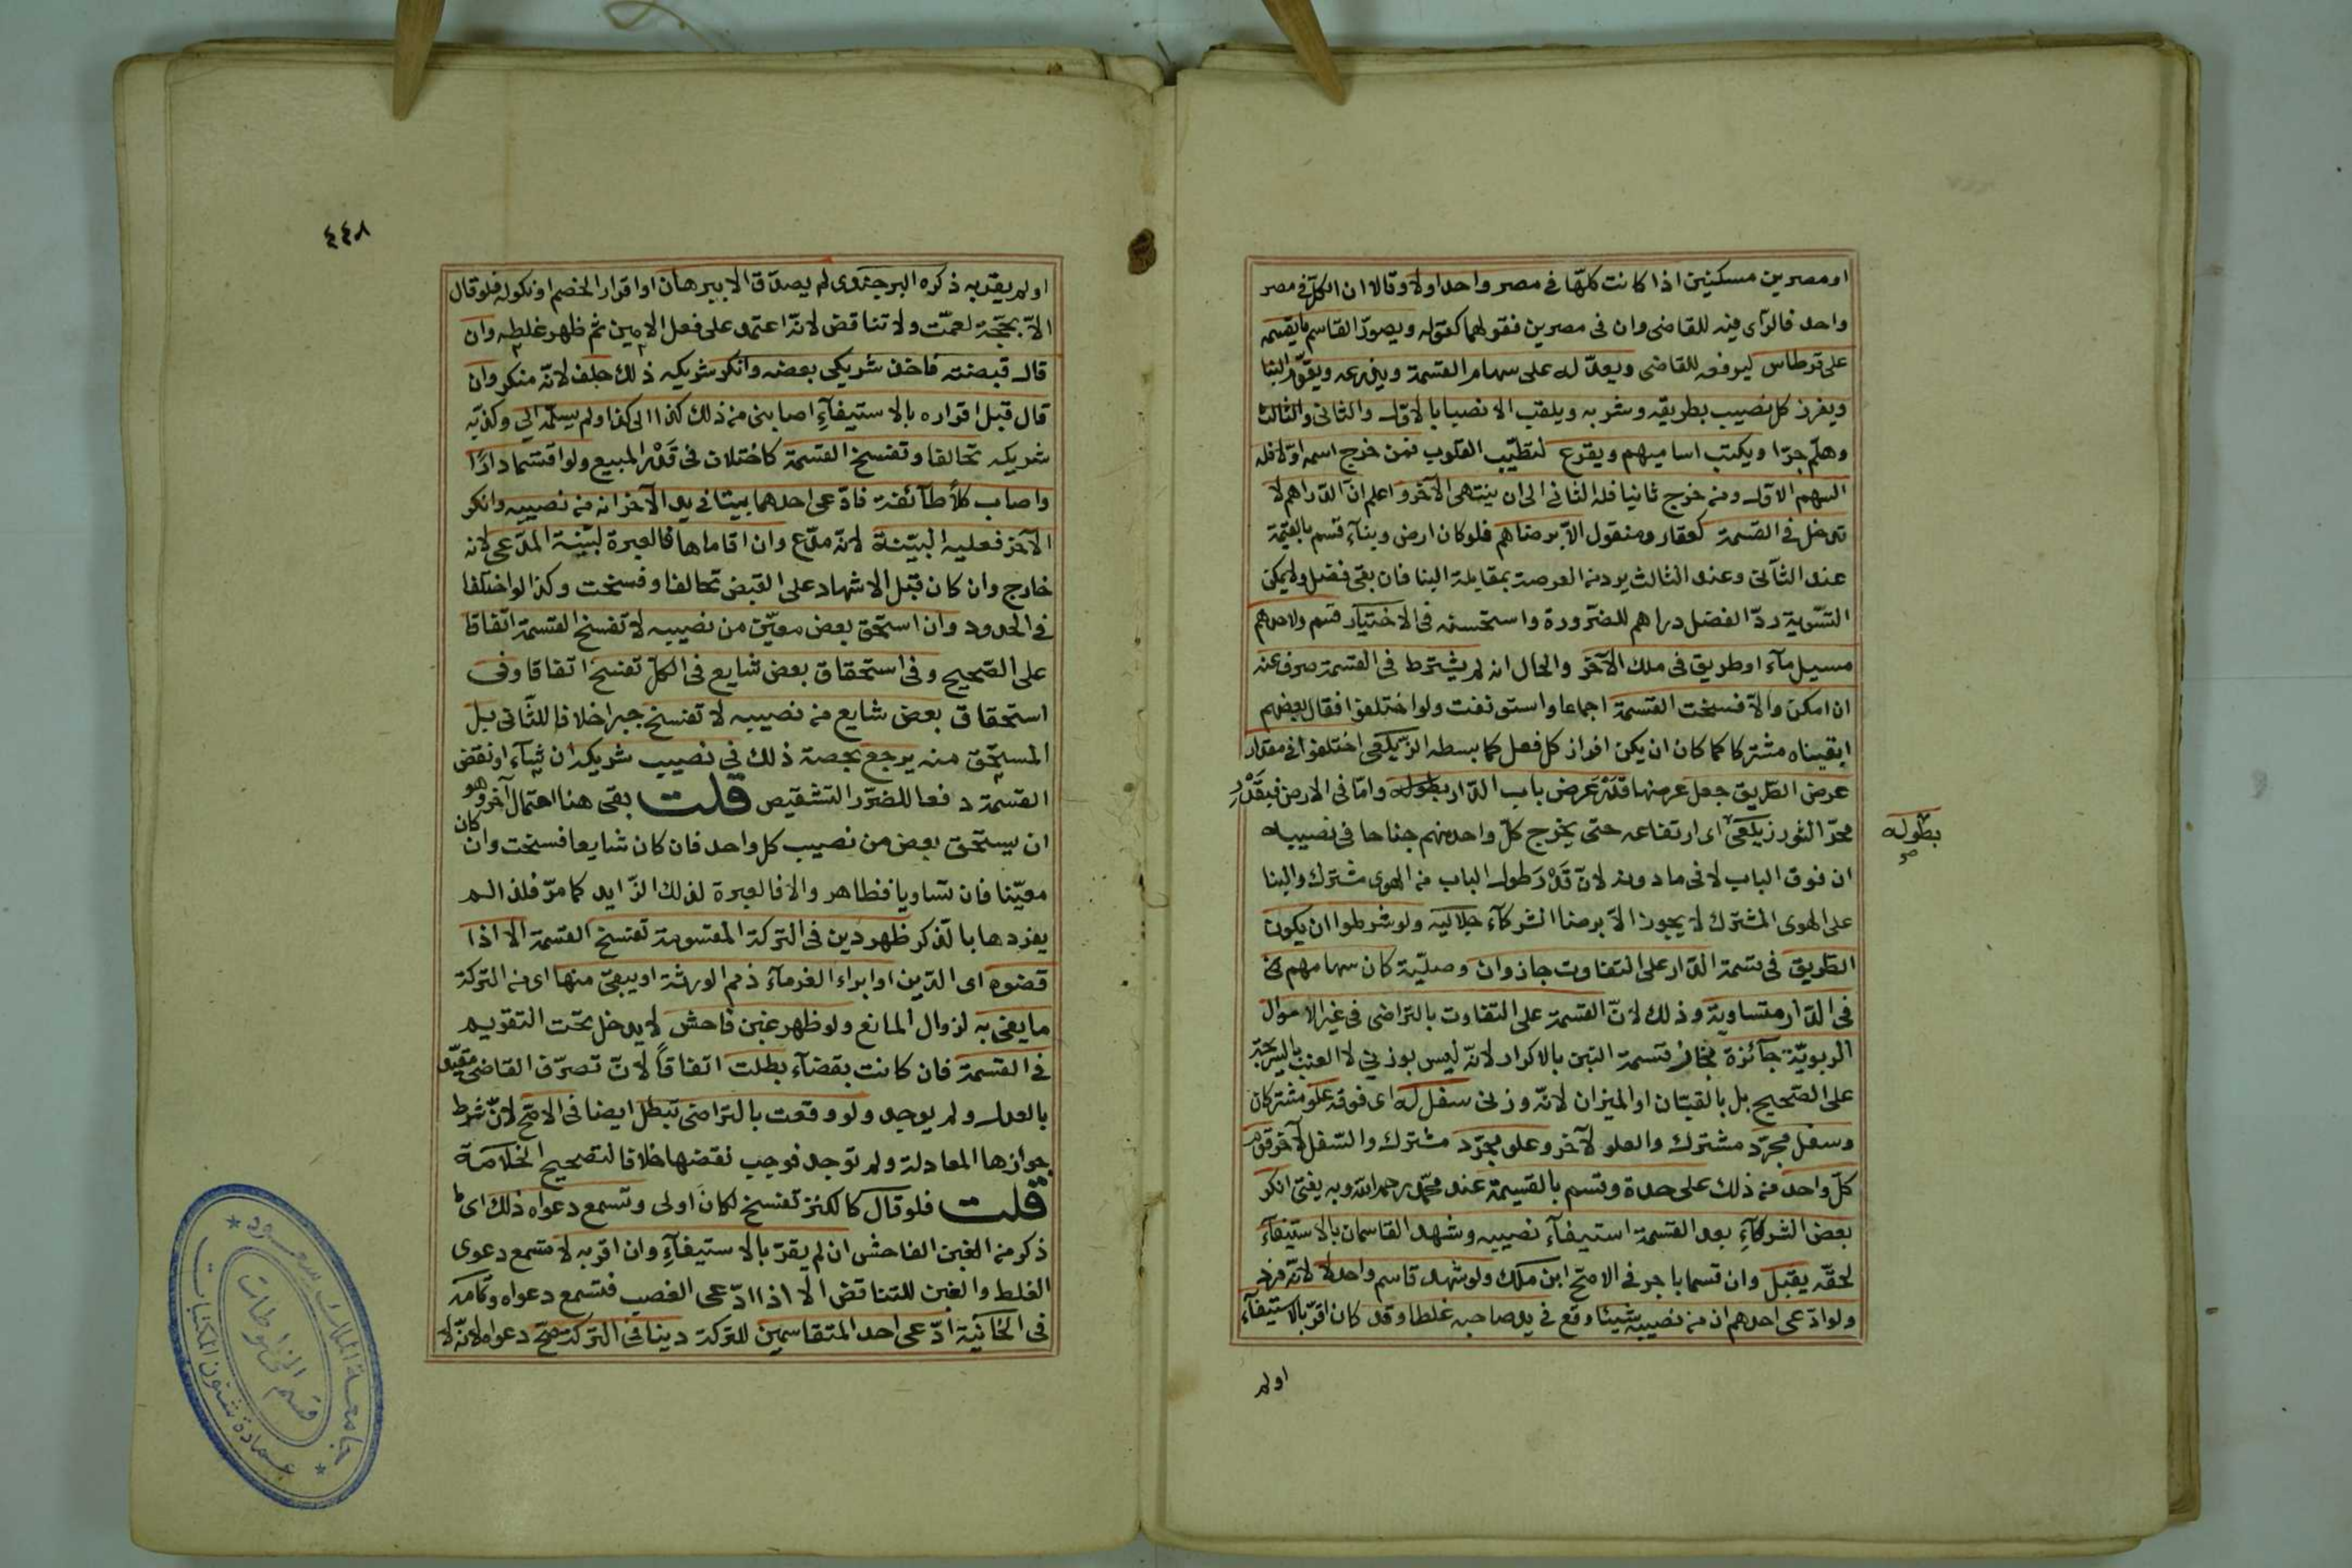 او مصرين مسكنين اذا كانت كلها في مصر واحد اولا وقالا ان الكل في مصر
واحد فالرّاى فيه للقاضى وان فى مصرين فقولهما كقوله ويصوّر القاسم ما يقسمه
على قرطاس ليرفعه للقاضى ويعدّله على سهام القسمة ويذرعه ويقوّم البنا
ويفرز كل نصيب بطريقه وشربه ويلقب الانصبا بالاوّل والثانى والثالث
وهلّم جرّا ويكتب اساميهم ويقرع لتطيّب القلوب فمن خرج اسمه اوّلا فله
السهم الاوّل ومن خرج ثانيا فله الثانى الى ان ينتهى الآخر واعلم انّ الدّراهم لا
تدخل فى القسمة كعقار ومنقول الاّ برضاهم فلو كان ارض وبنآء قسم بالقيمة
عند الثّانى وعند الثالث يرد من العرصة بمقابلة البنا فان بقى فضل ولا يمكن
التسّوية ردّ الفضل دراهم للضّرورة واستحسنه فى الاختيار قسم ولاحدهم
مسيل مآء او طريق فى ملك الآخر والحال انه لم يشترط فى القسمة صرف عنه
ان امكن والاّ فسخت القسمة اجماعا واستونفت ولو اختلفوا فقال بعضهم
ابقيناه مشتركا كما كان ان يكن افراز كل فعل كما بسطه الزّيلعى اختلفوا فى مقدار
عرض الطّريق جعل عرضها قَدْر عَرض باب الدّار بطوله وامّا فى الارض فبقَدْر
ممرّ الثور زيلعى اى ارتفاعه حتى يخرج كلّ واحد منهم جناحا فى نصيبه
بطوله صح
ان فوق الباب لا فى ما دونه لانّ قَدْر طول الباب من الهوى مشترك والبنا
على الهوى المشترك لا يجوز الاّ برضا الشركآء جلاليه ولو شرطوا ان يكون
الطّريق فى قسمة الدّار على التفاوت جاز وان وصليّة كان سهامهم فى
فى الدّار متساوية وذلك لانّ القسمة على التفاوت بالتراضى فى غير الاموال
الربويّة جآئزة فجاز قسمة التبن بالاكرار لانّه ليس بوزنى لا العنب بالشريجة
على الصّحيح بل بالقبّان او الميزان لانّه وزنى سفل له اى فوقه علو مشتركان
وسفل مجرّد مشترك والعلو لآخر وعلو مجرّد مشترك والسّفل لآخر قوّم
كلّ واحد من ذلك على حدة وقسم بالقيمة عند محمّد رحمه الله وبه يفتى انكر
بعض الشركآءِ بعد القسمة استيفآء نصيبه وشهد القاسمان بالاستيفآء
لحقّه يقبل وان قسما باجر فى الاصحّ ابن ملك ولو شهد قاسم واحد لا لانّه فرد
ولو ادّعى احدهم ان من نصيبه شيئا وقع فى يد صاحبه غلطا وقد كان اقرّ بالاستيفآء
اولم
٤٤٨
اولم يقرّ به ذكره البرجندى لم يصدّق الا ببرهان او اقرار الخصم او نكوله فلو قال
الاّ بحجّة لعمّت ولا تناقض لانّه اعتمد على فعل الامين ثم ظهر غلطه وان
قال قبضته فاخذ شريكى بعضه وانكر شريكه ذلك حلف لانّه منكر وان
قال قبل اقراره بالاستيفآءِ اصابنى من ذلك كذا الى كذا ولم يسلّمه الى وكذّبه
شريكه تحالفا وتفسخ القسمة كاختلاف فى قَدْر المبيع ولو اقتسما دارًا
واصاب كلاًّ طآئفة فادّعى احدهما بيتا فى يد الآخر انه من نصيبه وانكر
الآخر فعليه البيّنة لانّه مدّع وان اقاماها فالعبرة لبيّنة المدّعى لانه
خارج وان كان قبل الاشهاد على القبض تحالفا وفسخت وكذا لو اختلفا
فى الحدود وان استحق بعض معيّن من نصيبه لا تفسخ القسمة اتفاقا
على الصّحيح وفى استحقاق بعض شايع فى الكلّ تفسخ اتفاقا وفى
استحقاق بعض شايع من نصيبه لا تفسخ جبرا خلافا للثّانى بل
المستحّق منه يرجع بحصة ذلك فى نصيب شريكه ان شآء او نقض
القسمة دفعا للضرّر التشقيص قلت بقى هنا احتمال آخر وهو
ان يستحّق بعض من نصيب كل واحد فان كان شايعا فسخت وان كان
معيّنا فان تساويا فظاهر والا فالعبرة لذلك الزّايد كما مرّ فلذا لم
يفردها بالذّكر ظهر دين فى التركة المقسومة تفسخ القسمة الا اذا
قضوه اى الدّين او ابراء الغرمآء ذمم الورثة او يبقى منها اى من التركة
ما يفى به لزوال المانع ولو ظهر غبن فاحش لا يدخل تحت التقويم
فى القسمة فان كانت بقضآء بطلت اتفاقًا لانّ تصرّف القاضى مقيّد
بالعدل ولم يوجد ولو وقعت بالتراضى تبطل ايضا فى الاصّح لانّ شرط
جوازها المعادلة ولم توجد فوجب نقضها خلافا لتصحيح الخلاصة
قلت فلو قال كالكنز تفسخ لكانَ اولى وتسمع دعواه ذلك اى
ذكر من الغبن الفاحش ان لم يقرّ بالاستيفآءِ وان اقر به لا تسمع دعوى
الغلط والغبن للتناقض الا اذا ادّعى الغصب فتسمع دعواه وتمامه
فى الخانيّة ادّعى احد المتقاسمين للتركة دينا فى التركة صحّ دعواه لانّه لا
جامعة الملك سعود
قسم المخطوطات
عمادة شئون المكتبات